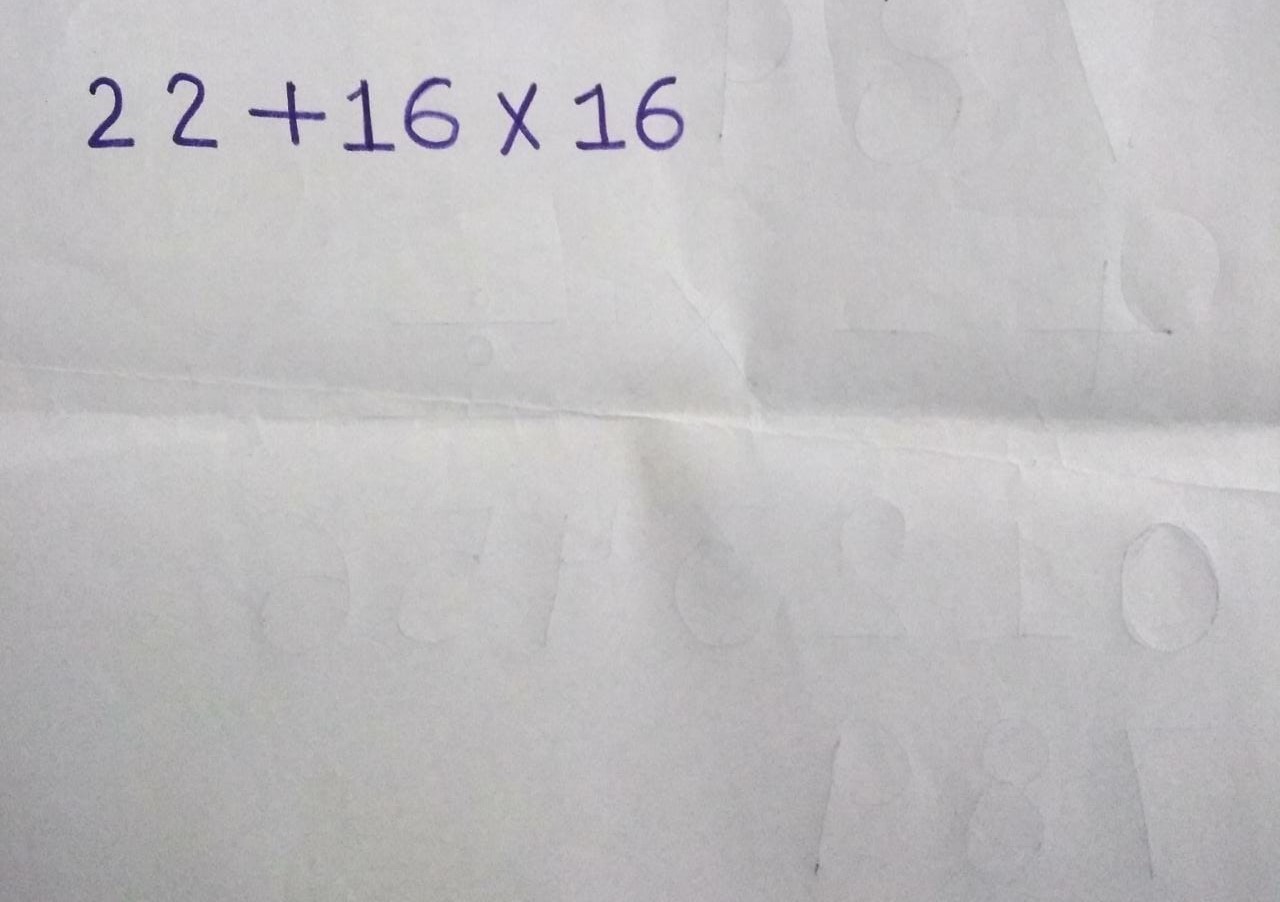 22+16×16